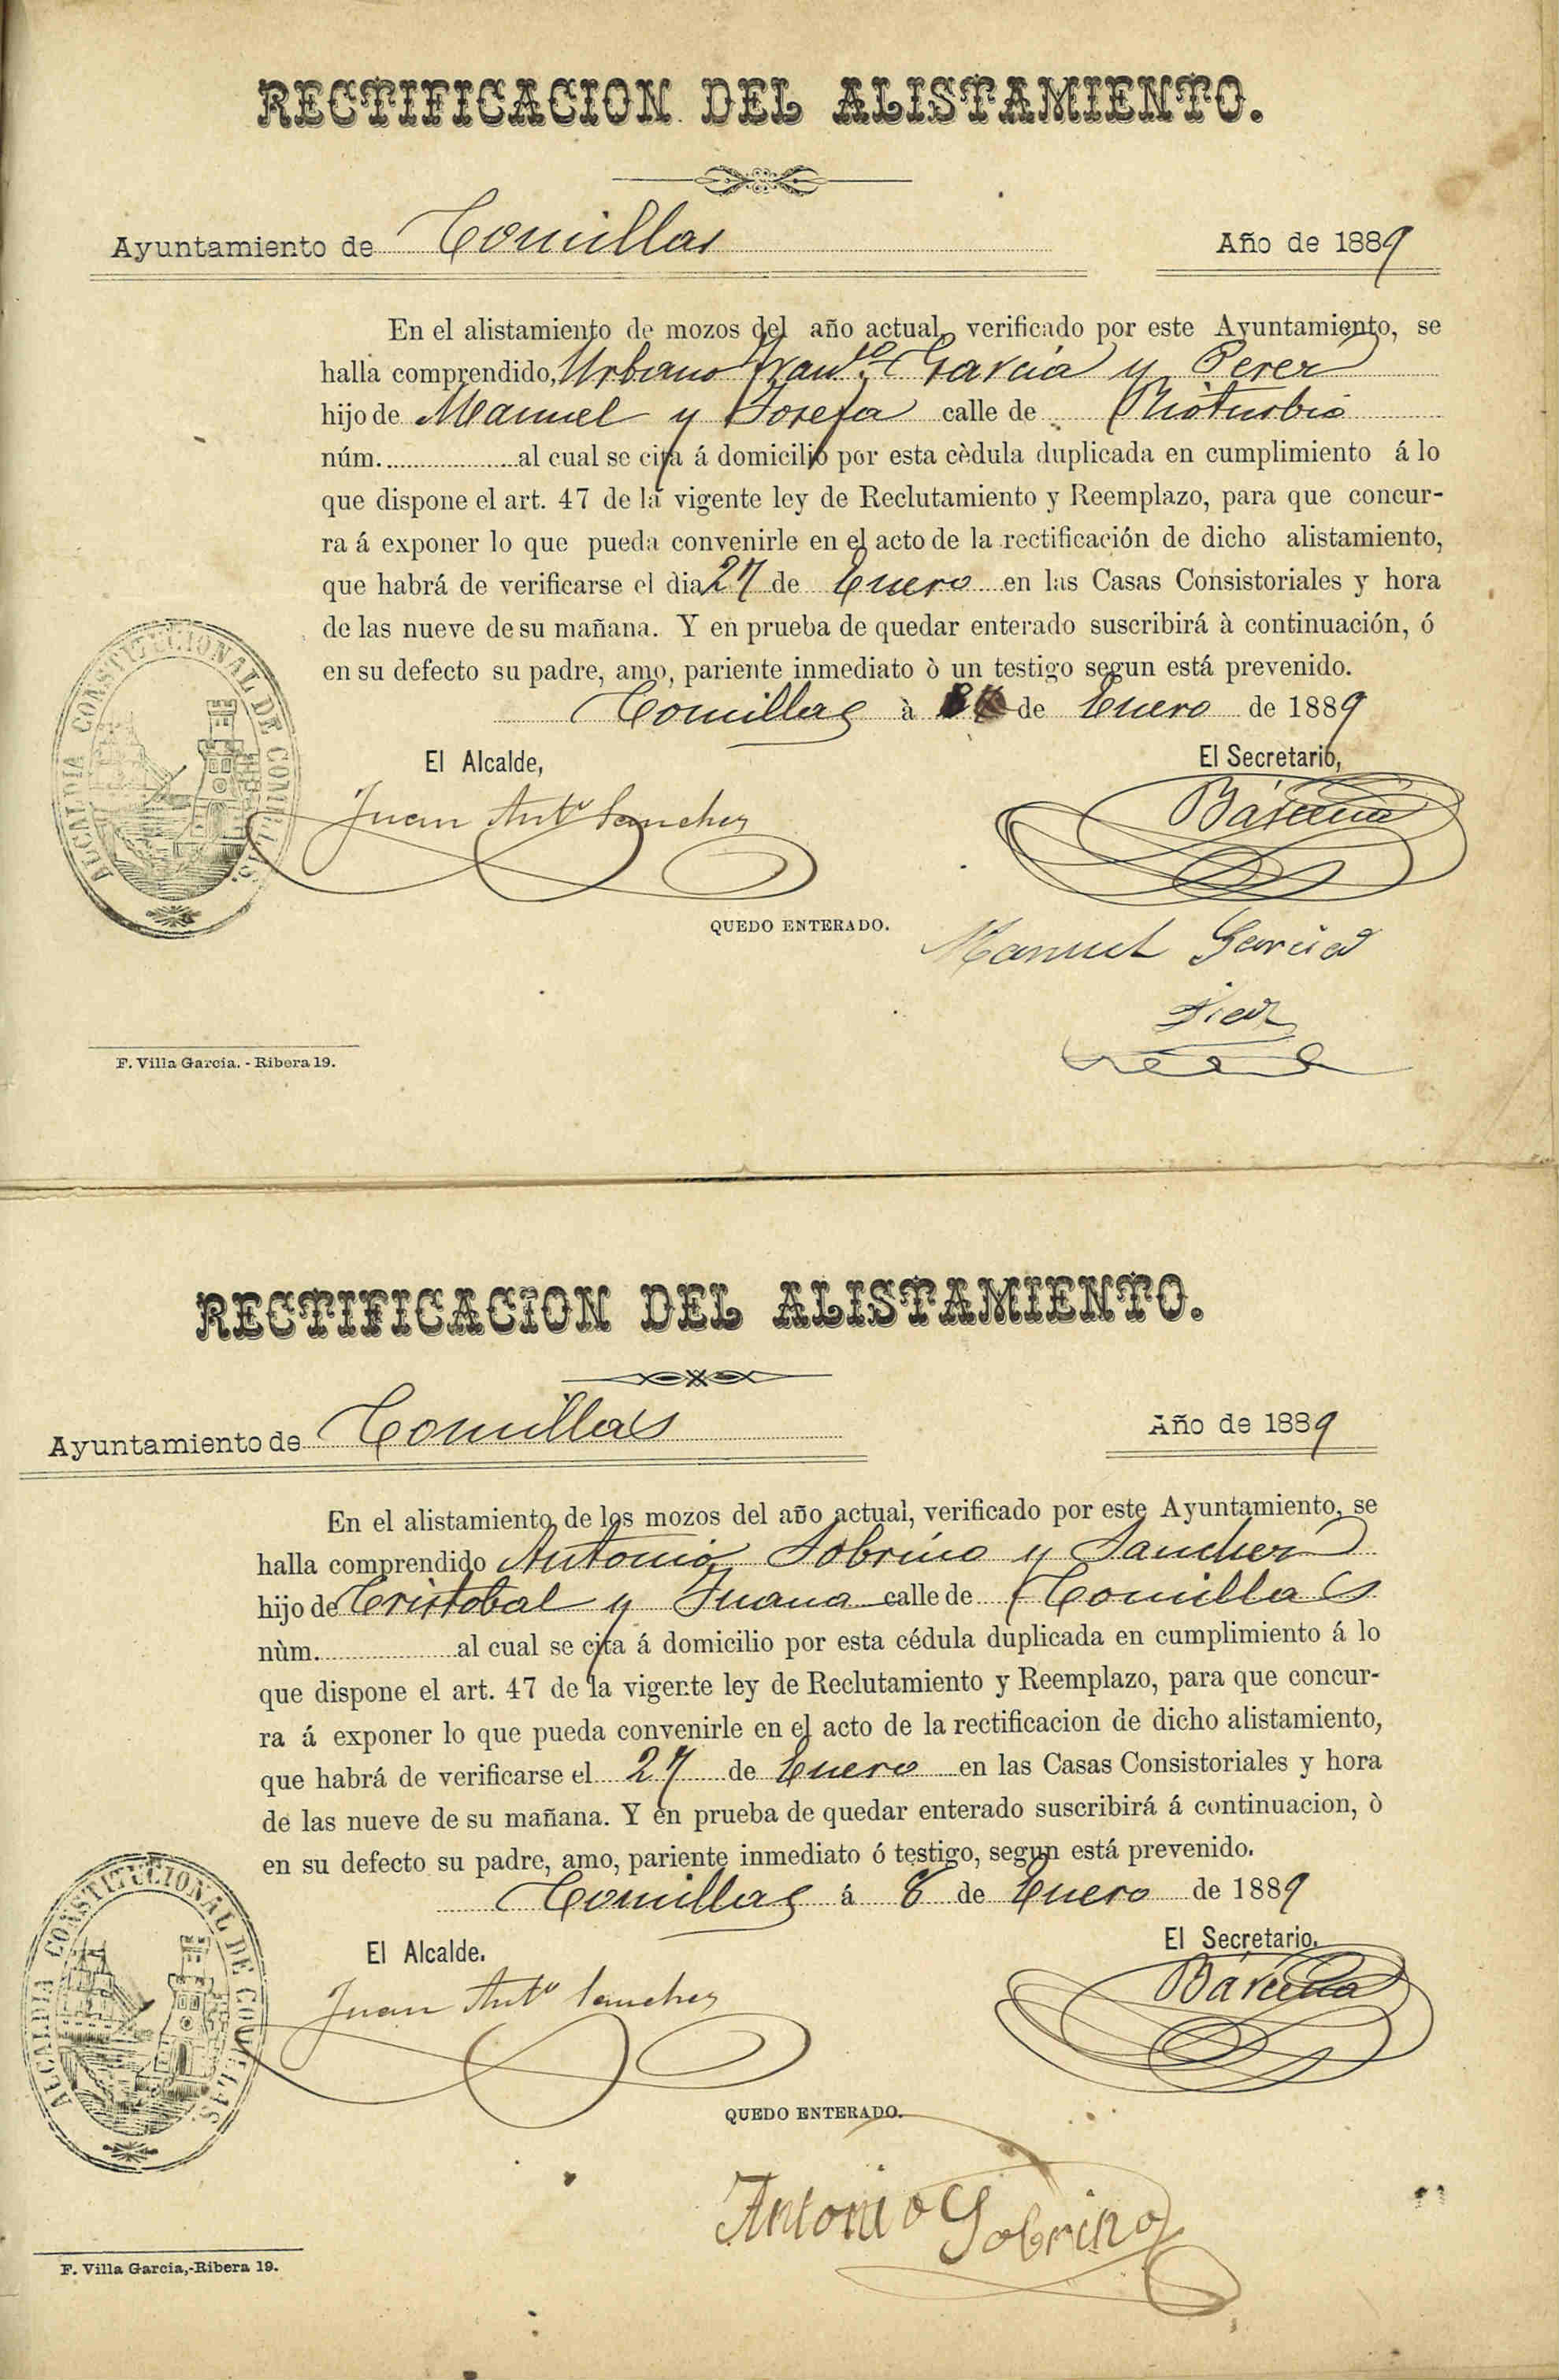 RECTIFICACION DEL ALISTAMIENTO.
Ayuntamiento de Comillas Año de 1889
En el alistamiento de mozos del año actual, verificado por este Ayuntamiento, se
halla comprendido, Urbano Franco García y Perez
hijo de Manuel y Josefa calle de Rioturbio
núm. al cual se cita á domicilio por esta cèdula duplicada en cumplimiento á lo
que dispone el art. 47 de la vigente ley de Reclutamiento y Reemplazo, para que concur-
ra á exponer lo que pueda convenirle en el acto de la rectificación de dicho alistamiento,
que habrá de verificarse el dia 27 de Enero en las Casas Consistoriales y hora
de las nueve de su mañana. Y en prueba de quedar enterado suscribirá à continuación, ó
en su defecto su padre, amo, pariente inmediato ò un testigo segun está prevenido.
Comillas à de Enero de 1889
El Alcalde, El Secretario,
Juan Anto Sanchez Bárcena
ALCALDIA CONSTITUCIONAL DE COMILLAS.
QUEDO ENTERADO.
Manuel Garcia
Diaz
F. Villa García. - Ribera 19.
RECTIFICACION DEL ALISTAMIENTO.
Ayuntamiento de Comillas Año de 1889
En el alistamiento de los mozos del año actual, verificado por este Ayuntamiento, se
halla comprendido Antonio Sobrino y Sanchez
hijo de Cristobal y Juana calle de Comillas
nùm. al cual se cita á domicilio por esta cédula duplicada en cumplimiento á lo
que dispone el art. 47 de la vigente ley de Reclutamiento y Reemplazo, para que concur-
ra á exponer lo que pueda convenirle en el acto de la rectificacion de dicho alistamiento,
que habrá de verificarse el 27 de Enero en las Casas Consistoriales y hora
de las nueve de su mañana. Y en prueba de quedar enterado suscribirá á continuacion, ò
en su defecto su padre, amo, pariente inmediato ó testigo, segun está prevenido.
Comillas á 8 de Enero de 1889
El Alcalde. El Secretario.
Juan Anto Sanchez Bárcena
ALCALDIA CONSTITUCIONAL DE COMILLAS.
QUEDO ENTERADO.
Antonio Sobrino
F. Villa García,-Ribera 19.